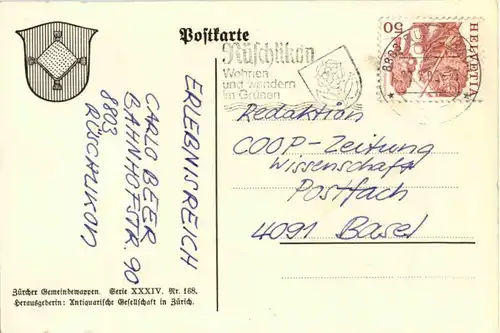 Postkarte
Rüschlikon
Wohnen
und wandern
im Grünen
50
HELVETIA
ERLEBNISREICH
CARLO BEER
BAHNHOFSTR. 90
8803
RÜSCHLIKON
Redaktion
COOP-Zeitung
Wissenschaft
Postfach
4091 Basel
Zürcher Gemeindewappen. Serie XXXIV. Nr. 168.
Herausgeberin: Antiquarische Gesellschaft in Zürich.